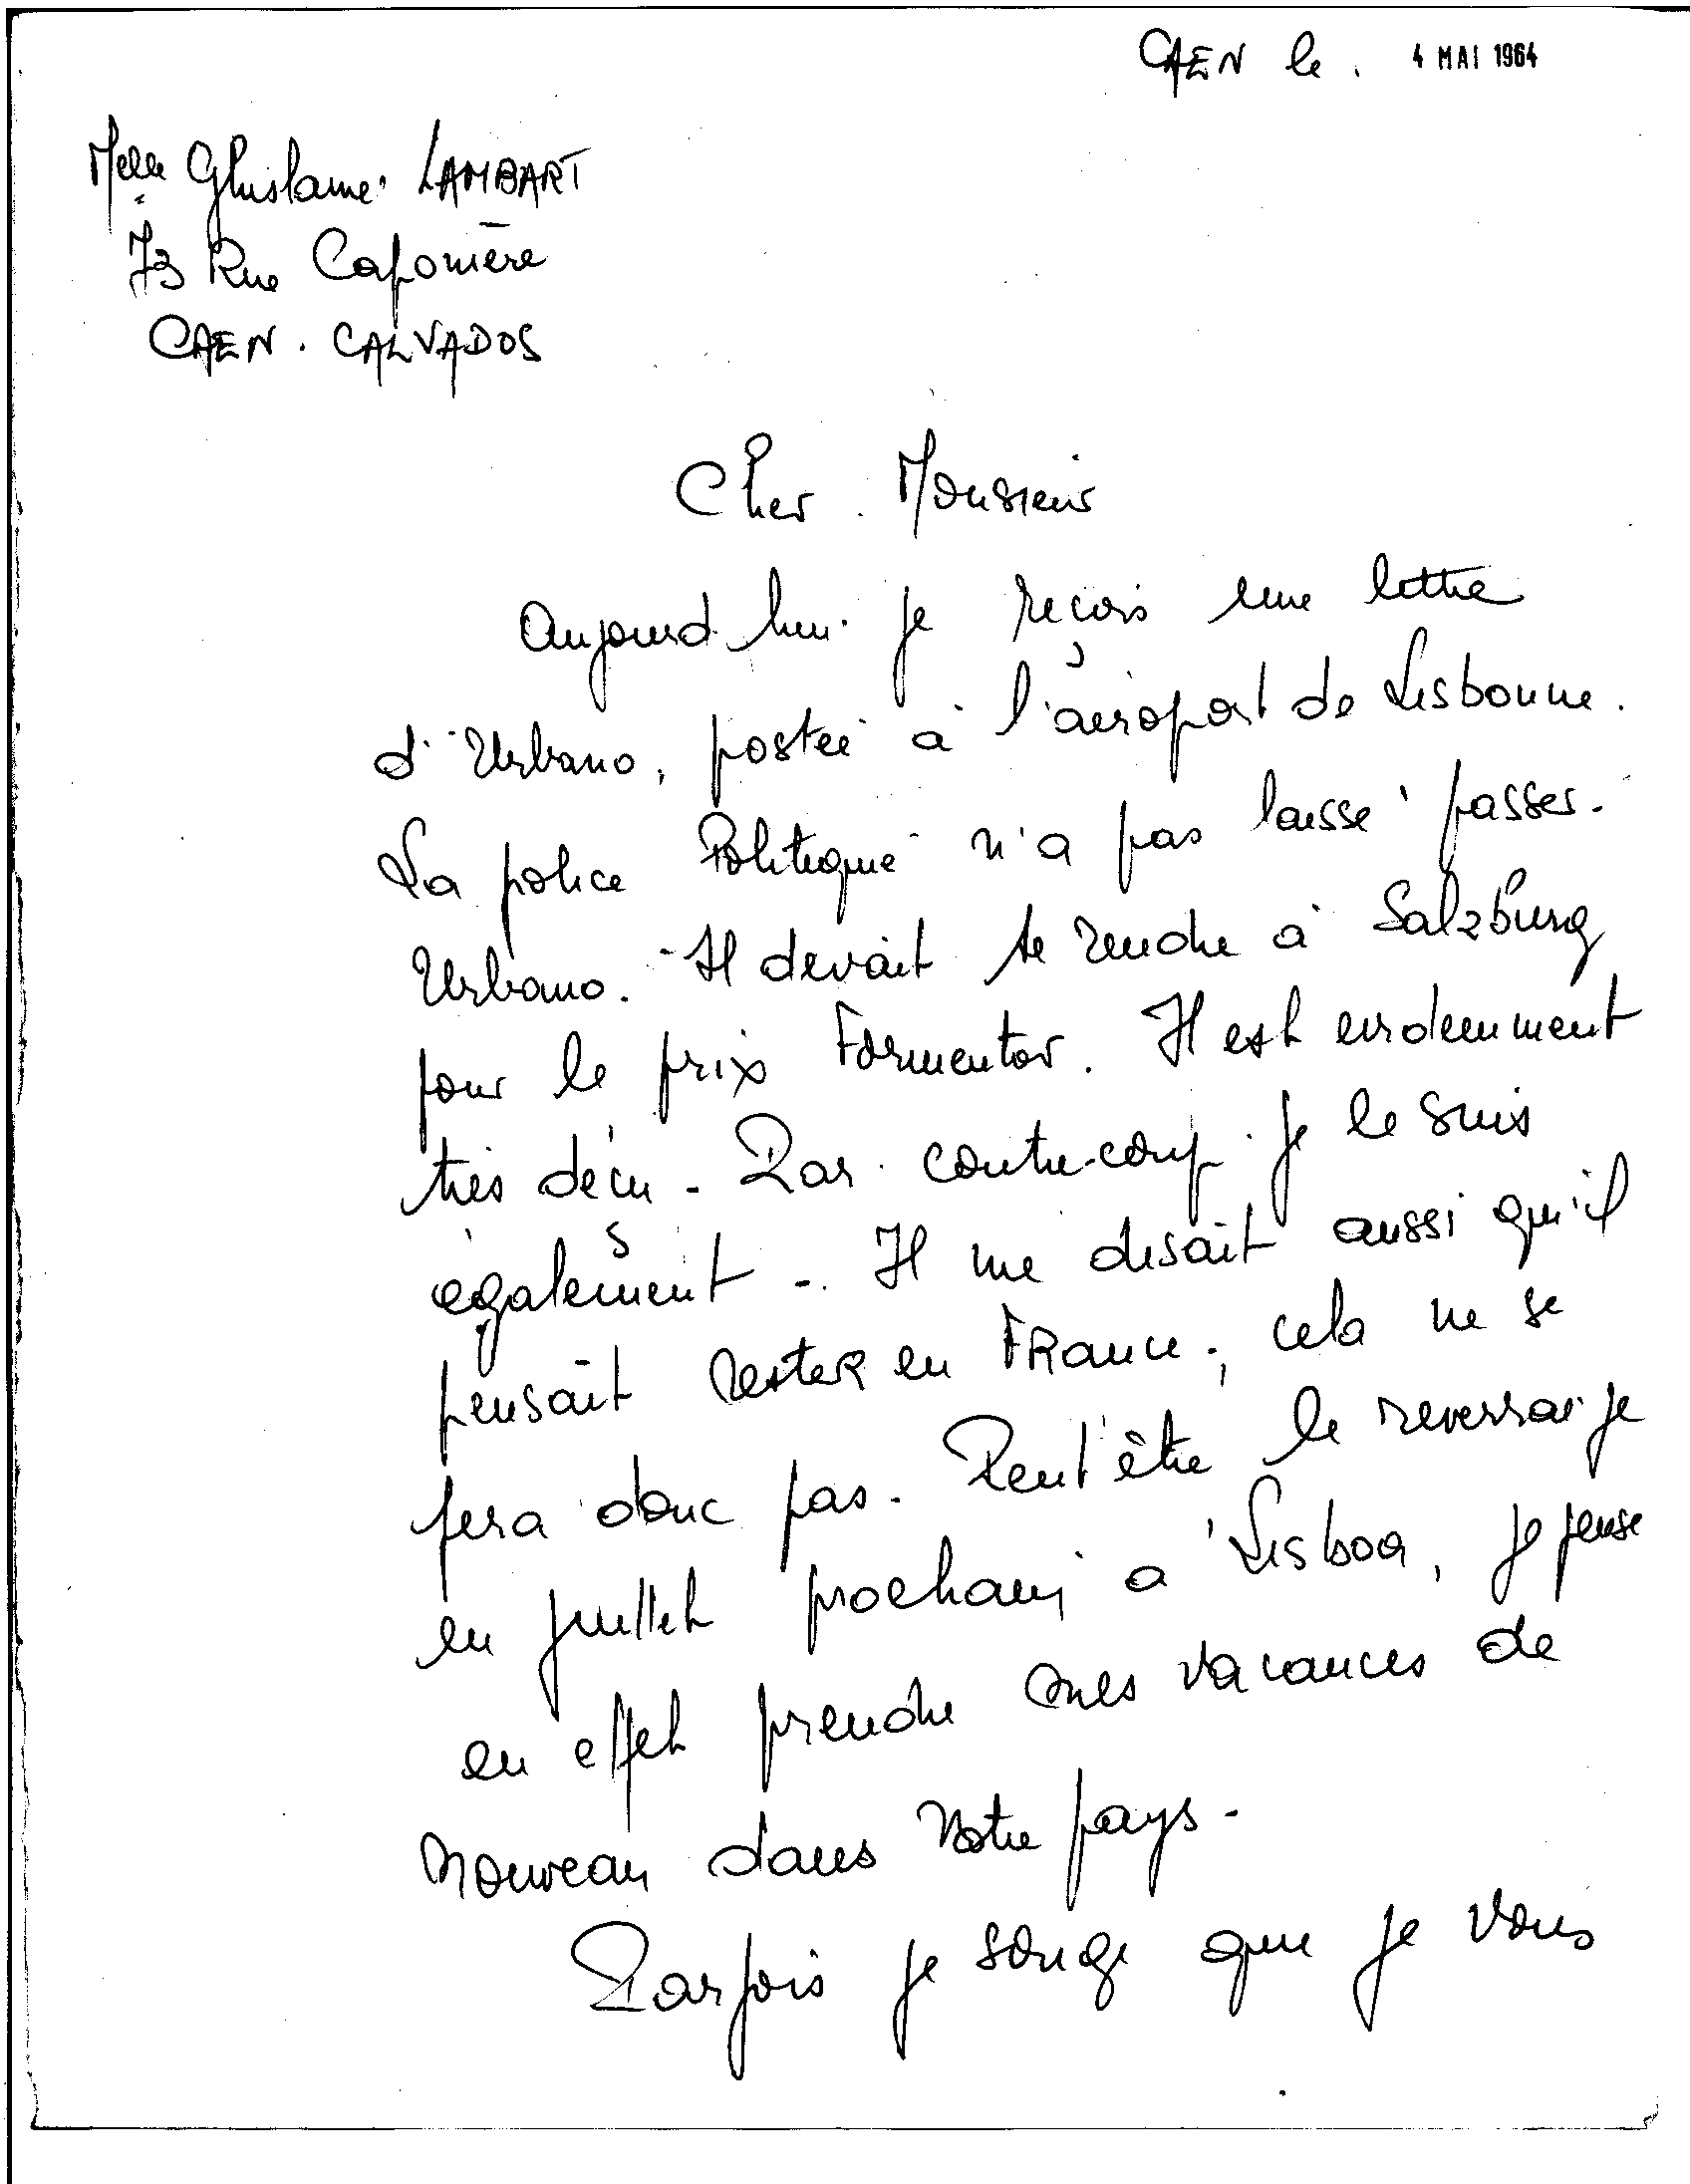 CAEN le. 4 MAI 1964
Melle Ghislaine LAMBART
73 Rue Caponière
CAEN. CALVADOS
Cher Monsieur
Aujourd'hui je reçois une lettre
d'Urbano, postée à l'aéroport de Lisbonne.
La police Politique n'a pas laissé passer
Urbano. Il devait se rendre à Salzburg
pour le prix Formentor. Il est evidemment
très déçu - Par contre-coup je le suis
également -. Il me disait aussi qu'il
pensait rester en France, cela ne se
fera donc pas. Peut'être le reverrai je
en juillet prochain à Lisboa, je pense
en effet prendre mes vacances de
nouveau dans votre pays -
Parfois je songe que je vous